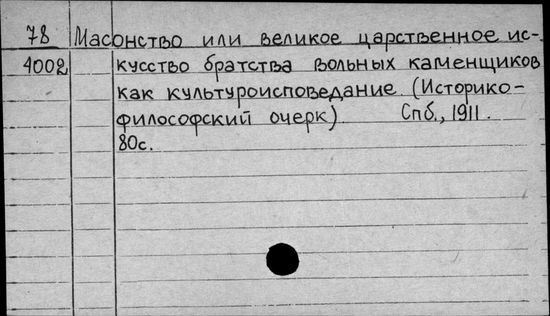 78 Масонство или великое царственное ис-
4002 кусство братства вольных каменщиков
как культуроисповедание. (Историко-
философский очерк) Спб., 1911.
80с.